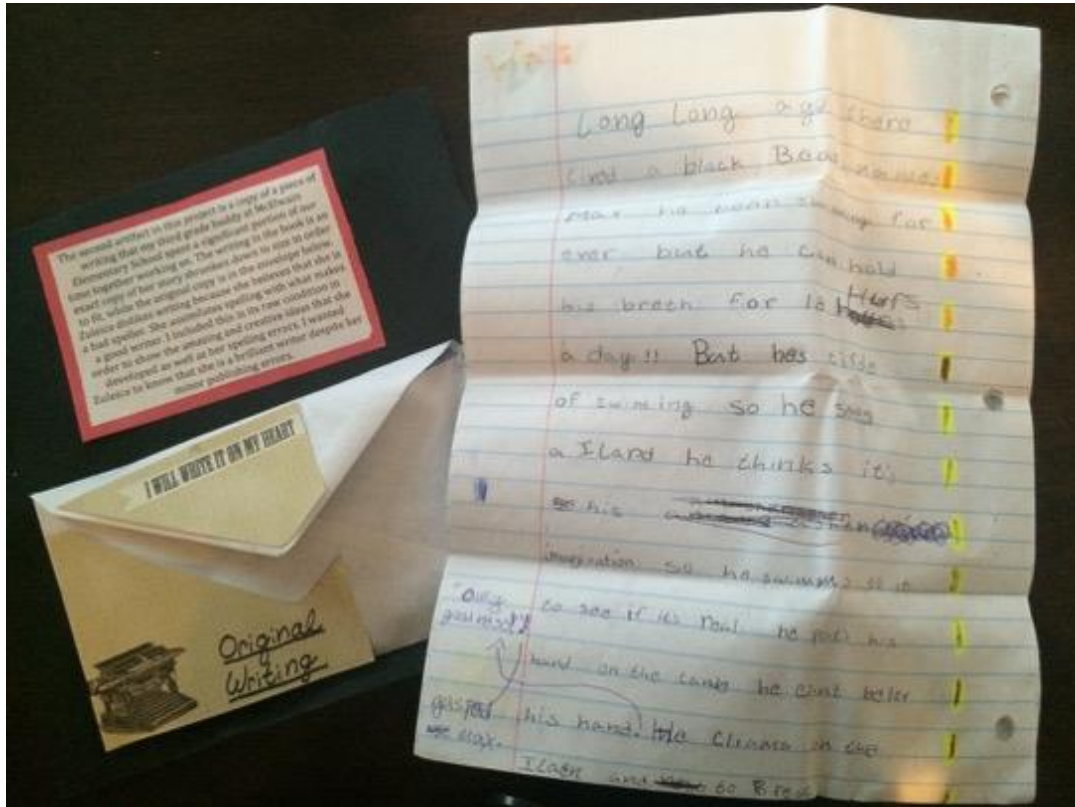 The second artifact in this project is a copy of a piece of
writing that my third grade buddy at McElwain
Elementary School spent a significant portion of our
time together working on. The writing in the book is an
exact copy of her story shrunken down to size in order
to fit, while the original copy is in the envelope below.
Zuleica dislikes writing because she believes that she is
a bad speller. She assimilates spelling with what makes
a good writer. I included this in its raw condition in
order to show the amazing and creative ideas that she
developed as well as her spelling errors. I wanted
Zuleica to know that she is a brilliant writer despite her
minor publishing errors.
I WILL WRITE IT ON MY HEART
Original
Writing
Long Long ago there
a black
Max he swiming for
ever but he can hold
his breth for 10 Hurs
a day!! But
of swiming so he
a Iland he thinks it's
his
imagination so he swimms
to see if it's he his
hand on the he
his hand. He on the
and to
gasped
Max.